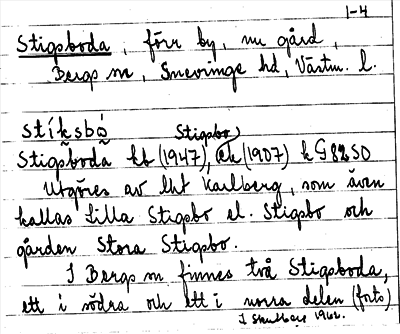 1-4
Stigsboda, förr by, nu gård,
Bergs sn, Snevringe hd, Västm. l.
stíksbò
Stigsbo
Stigsboda kb (1947), ek (1907) k G 82 SO
Utgöres av lht Karlberg, som även
kallas Lilla Stigsbo el. Stigsbo och
gården Stora Stigsbo.
I Bergs sn finnes två Stigsboda,
ett i södra och ett i norra delen (forts)
1960.